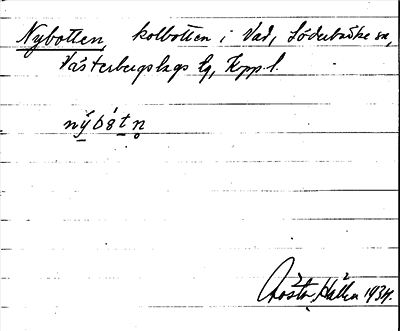 Nybotten, kolbotten i Vad, Söderbärke sn,
Västerbergslags tg, Kppl.
nýbòtn
Gösta Hallén 1934.